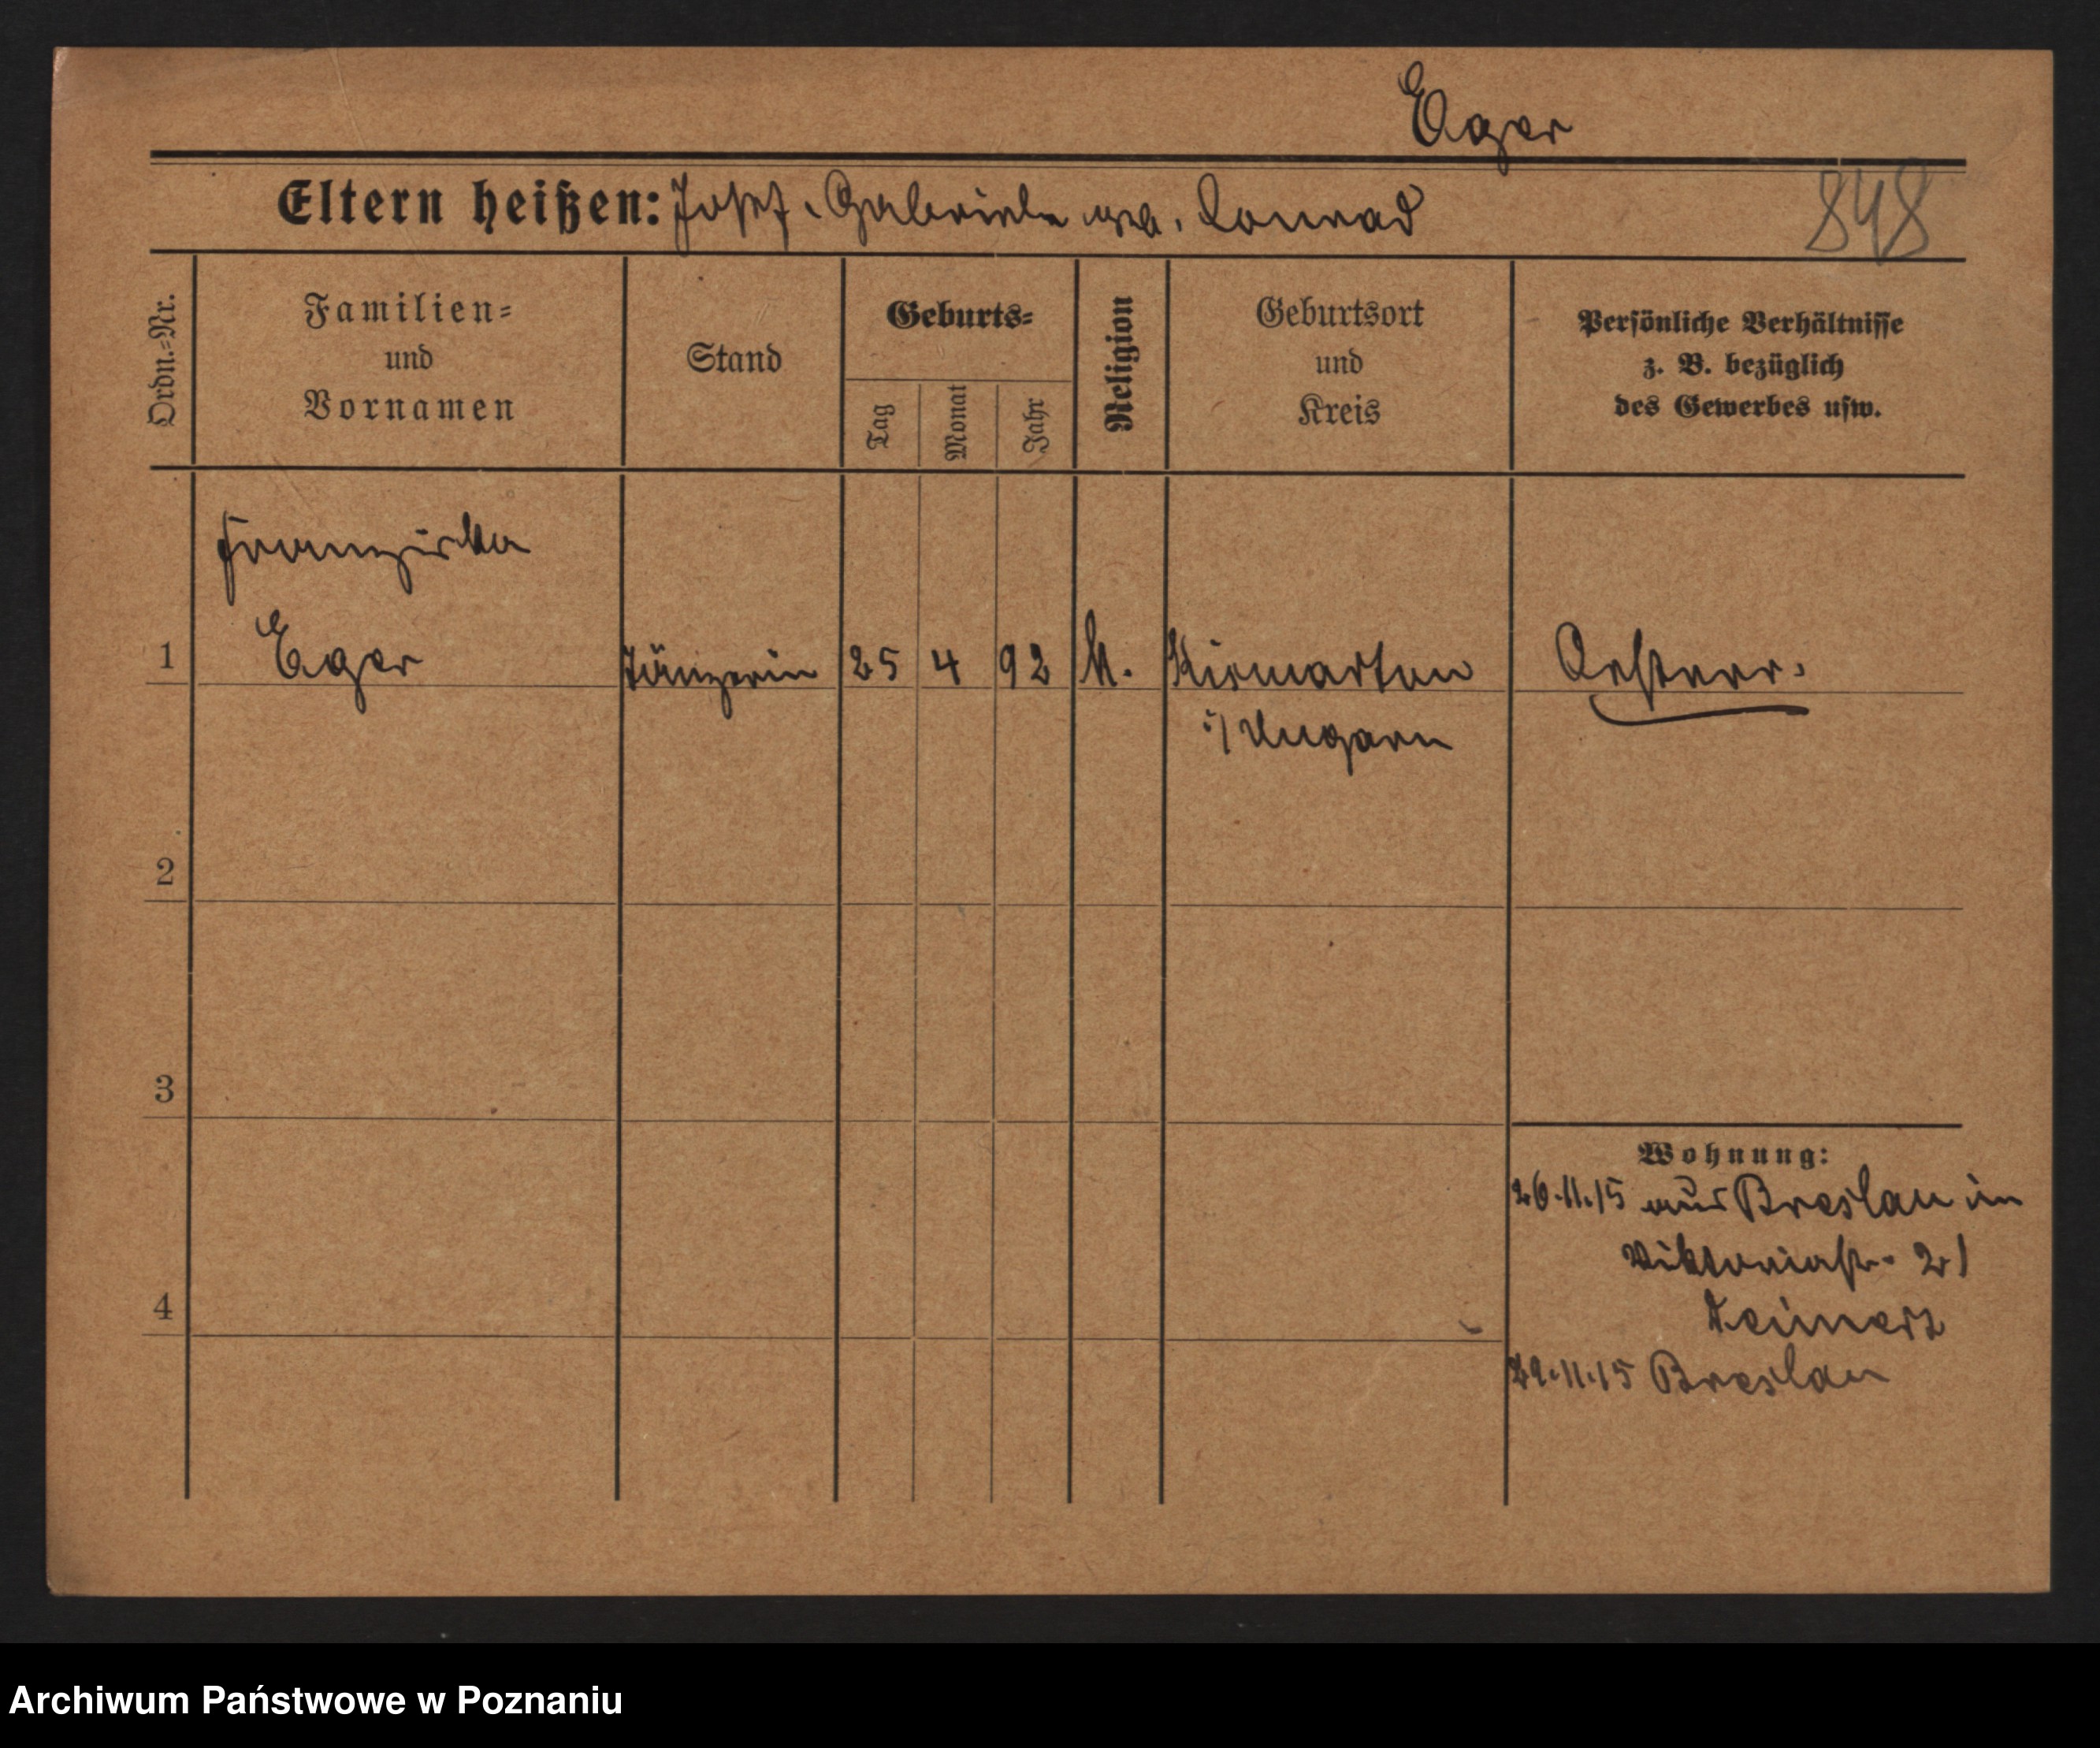 Eger
Eltern heißen: Josef, Gabriele geb. Konrad
848
Ordn.=Nr.
Familien=
und
Vornamen
Stand
Geburts=
Tag
Monat
Jahr
Religion
Geburtsort
und
Kreis
Persönliche Verhältnisse
z. B. bezüglich
des Gewerbes usw.
Franziska
1 Eger Tänzerin 25 4 92 k. Kismarton Oesterr.
i/ Ungarn
2
3
Wohnung:
26.11.15 aus Breslau in
Viktoriastr. 21
4
29.11.15 Breslau
Archiwum Państwowe w Poznaniu